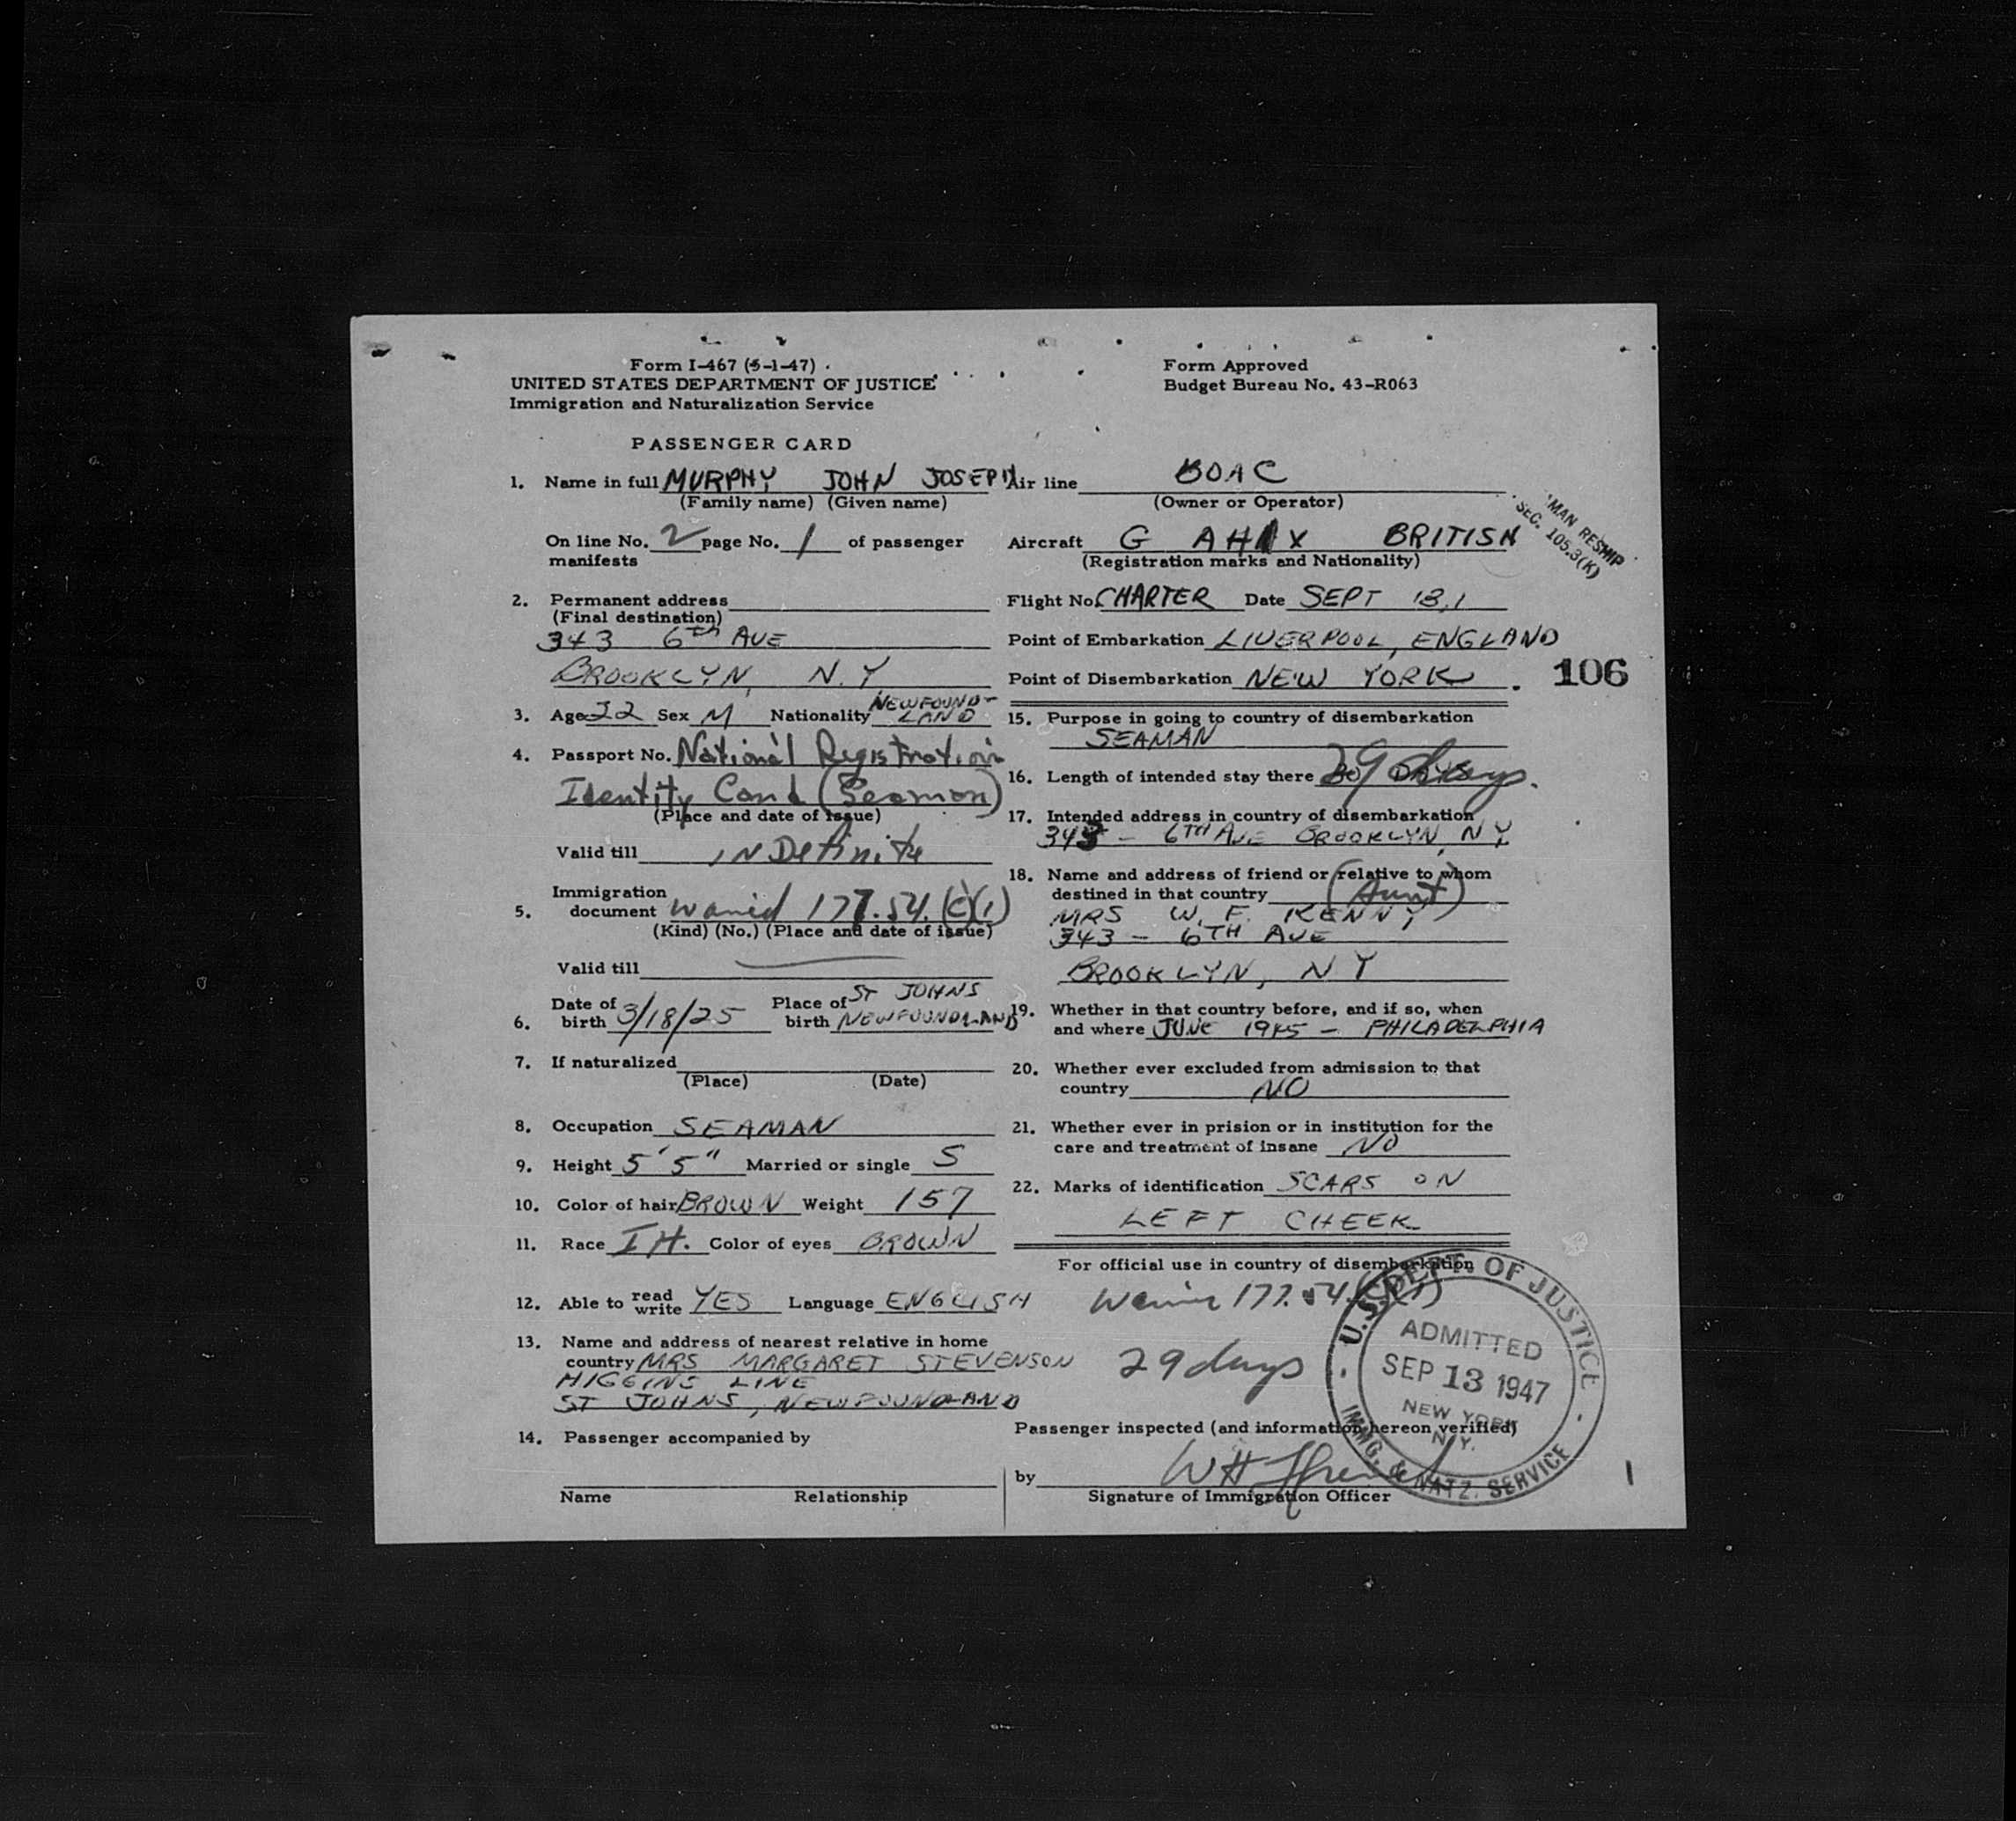 Form I-467 (5-1-47)
UNITED STATES DEPARTMENT OF JUSTICE
Immigration and Naturalization Service
Form Approved
Budget Bureau No. 43-R063
PASSENGER CARD
1. Name in full MURPHY JOHN JOSEPH
(Family name) (Given name)
On line No. 2 page No. 1 of passenger
manifests
2. Permanent address
(Final destination)
343 6th AVE
BROOKLYN, N.Y
3. Age 22 Sex M Nationality NEWFOUND-
LAND
4. Passport No. National Registration
Identity Card (Seaman)
(Place and date of issue)
Valid till INDefinite
Immigration
5. document waived 177.54.(c)(1)
(Kind) (No.) (Place and date of issue)
Valid till
Date of Place of ST JOHNS
6. birth 3/18/25 birth NEWFOUNDLAND
7. If naturalized
(Place) (Date)
8. Occupation SEAMAN
9. Height 5' 5" Married or single S
10. Color of hair BROWN Weight 157
11. Race IH. Color of eyes BROWN
12. Able to read write YES Language ENGLISH
13. Name and address of nearest relative in home
country MRS MARGARET STEVENSON
HIGGINS LINE
ST JOHNS, NEWFOUNDLAND
14. Passenger accompanied by
Name Relationship
Air line BOAC
(Owner or Operator)
Aircraft G BRITISH
(Registration marks and Nationality)
MAN RESHIP
SEC. 105.3(K)
Flight No. CHARTER Date SEPT
Point of Embarkation LIVERPOOL, ENGLAND
Point of Disembarkation NEW YORK.
106
15. Purpose in going to country of disembarkation
SEAMAN
16. Length of intended stay there 29 days.
17. Intended address in country of disembarkation
343 - 6TH AVE BROOKLYN, NY.
18. Name and address of friend or relative to whom
destined in that country (Aunt)
MRS W. F. KENNY,
343 - 6TH AVE
BROOKLYN, NY
19. Whether in that country before, and if so, when
and where JUNE 1945 - PHILADELPHIA
20. Whether ever excluded from admission to that
country NO
21. Whether ever in prision or in institution for the
care and treatment of insane NO
22. Marks of identification SCARS ON
LEFT CHEEK
For official use in country of disembarkation
177.54.(c)(1)
29 days
U.S. DEPT. OF JUSTICE
ADMITTED
SEP 13 1947
NEW YORK
N.Y.
IMMG. & NATZ. SERVICE
Passenger inspected (and information hereon verified)
by W H
Signature of Immigration Officer